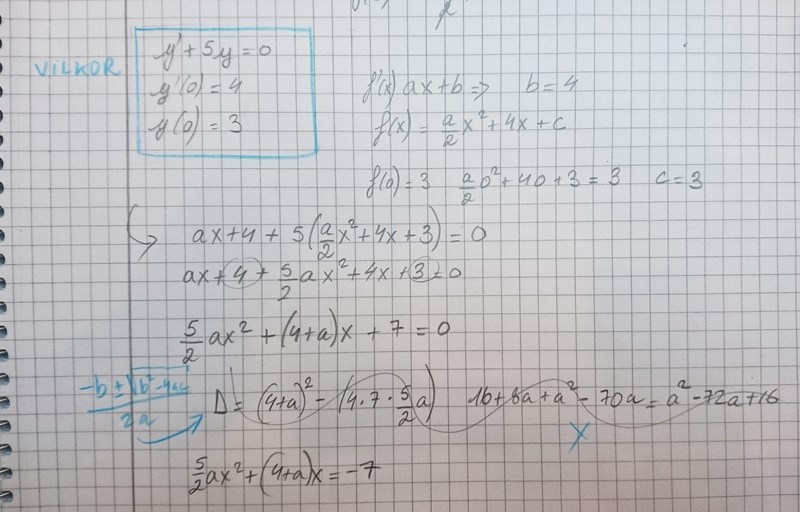 VILKOR
y' + 5y = 0
y'(0) = 4
y(0) = 3
f'(x) ax + b => b = 4
f(x) = a/2 x² + 4x + c
f(0) = 3 a/2 0² + 40 + 3 = 3 c = 3
ax + 4 + 5(a/2 x² + 4x + 3) = 0
ax + 4 + 5/2 ax² + 4x + 3 = 0
5/2 ax² + (4+a)x + 7 = 0
-b ± √b² - 4ac / 2a
Δ = (4+a)² - (4·7·5/2 a) 16 + 8a + a² - 70a = a² - 72a + 16
X
5/2 ax² + (4+a)x = -7